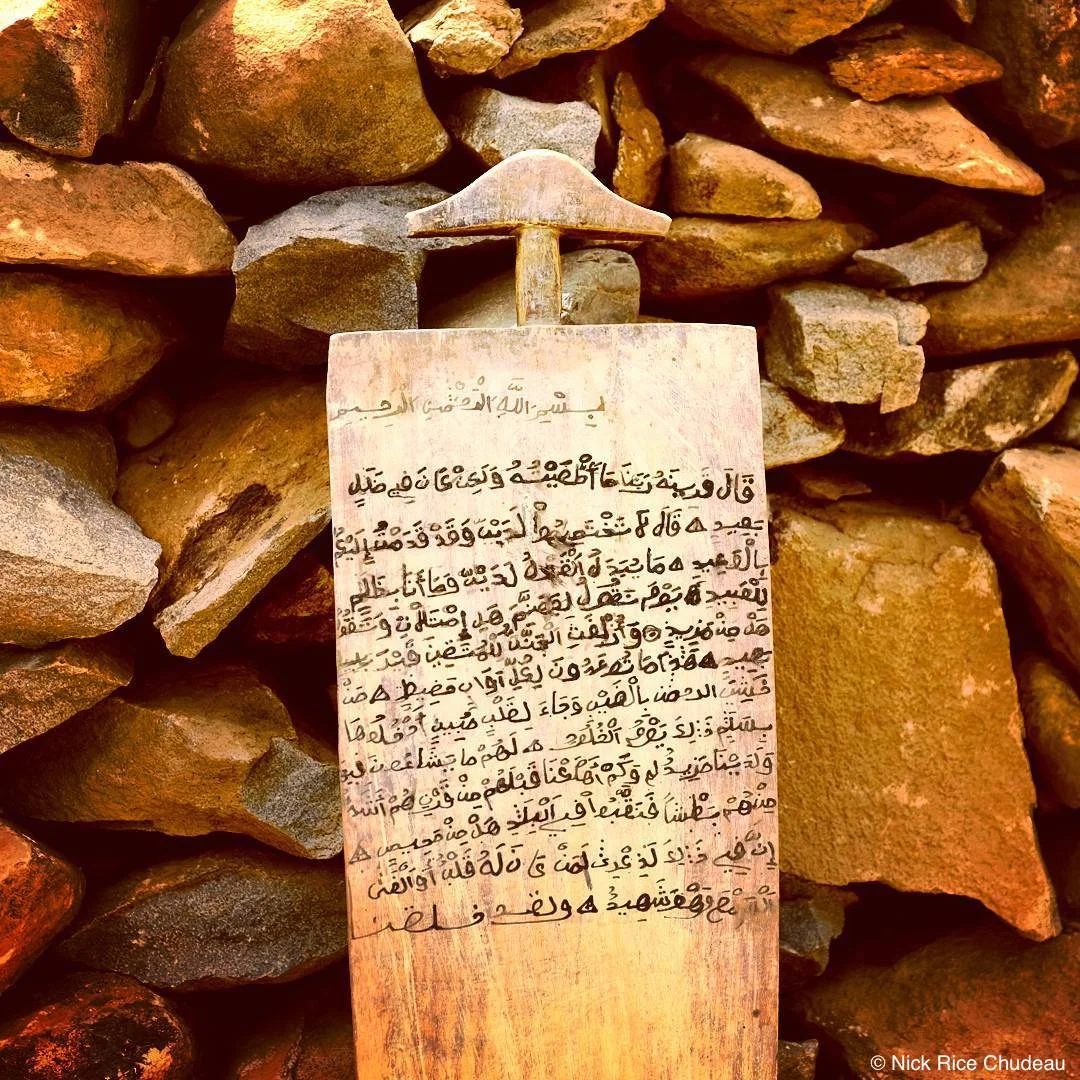 بسم الله الرحمن الرحيم
قَالَ قَرِينُهُ رَبَّنَا مَا أَطْغَيْتُهُ وَلَكِنْ كَانَ فِي ضَلَلٍ
بَعِيدٍ قَالَ لَا تَخْتَصِمُوا لَدَيَّ وَقَدْ قَدَّمْتُ إِلَيْكُم
بِالْوَعِيدِ مَا يُبَدَّلُ الْقَوْلُ لَدَيَّ وَمَا أَنَا بِظَلَّمٍ
لِلْعَبِيدِ يَوْمَ يَقُولُ لِجَهَنَّمَ هَلِ امْتَلَأْتِ وَتَقُولُ
هَلْ مِنْ مَزِيدٍ وَأُزْلِفَتِ الْجَنَّةُ لِلْمُتَّقِينَ غَيْرَ
بَعِيدٍ هَذَا مَا تُوعَدُونَ لِكُلِّ أَوَّابٍ حَفِيظٍ مَنْ
خَشِيَ الرحمن بِالْغَيْبِ وَجَاءَ بِقَلْبٍ مُنِيبٍ ادْخُلُوهَا
بِسَلَمٍ ذَلِكَ يَوْمُ الْخُلُودِ لَهُمْ مَا يَشَاءُونَ فِيهَا
وَلَدَيْنَا مَزِيدٌ وَكَمْ أَهْلَكْنَا قَبْلَهُمْ مِنْ قَرْنٍ هُمْ أَشَدُّ
مِنْهُمْ بَطْشًا فَنَقَّبُوا فِي الْبِلَدِ هَلْ مِنْ مَحِيصٍ
إِنَّ فِي ذَلِكَ لَذِكْرَى لِمَنْ كَانَ لَهُ قَلْبٌ أَوْ أَلْقَى
السَّمْعَ وَهْوَ شَهِيدٌ ولقد خلقنا
© Nick Rice Chudeau